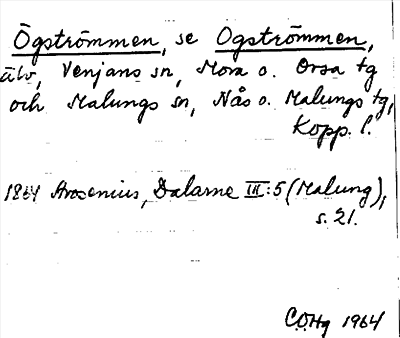 Ögströmmen, se Ogströmmen,
älv, Venjans sn, Mora o. Orsa tg
och Malungs sn, Nås o. Malungs tg,
Kopp. l.
1864 Arosenius, Dalarne III:5 (Malung),
s. 21.
COHg 1964